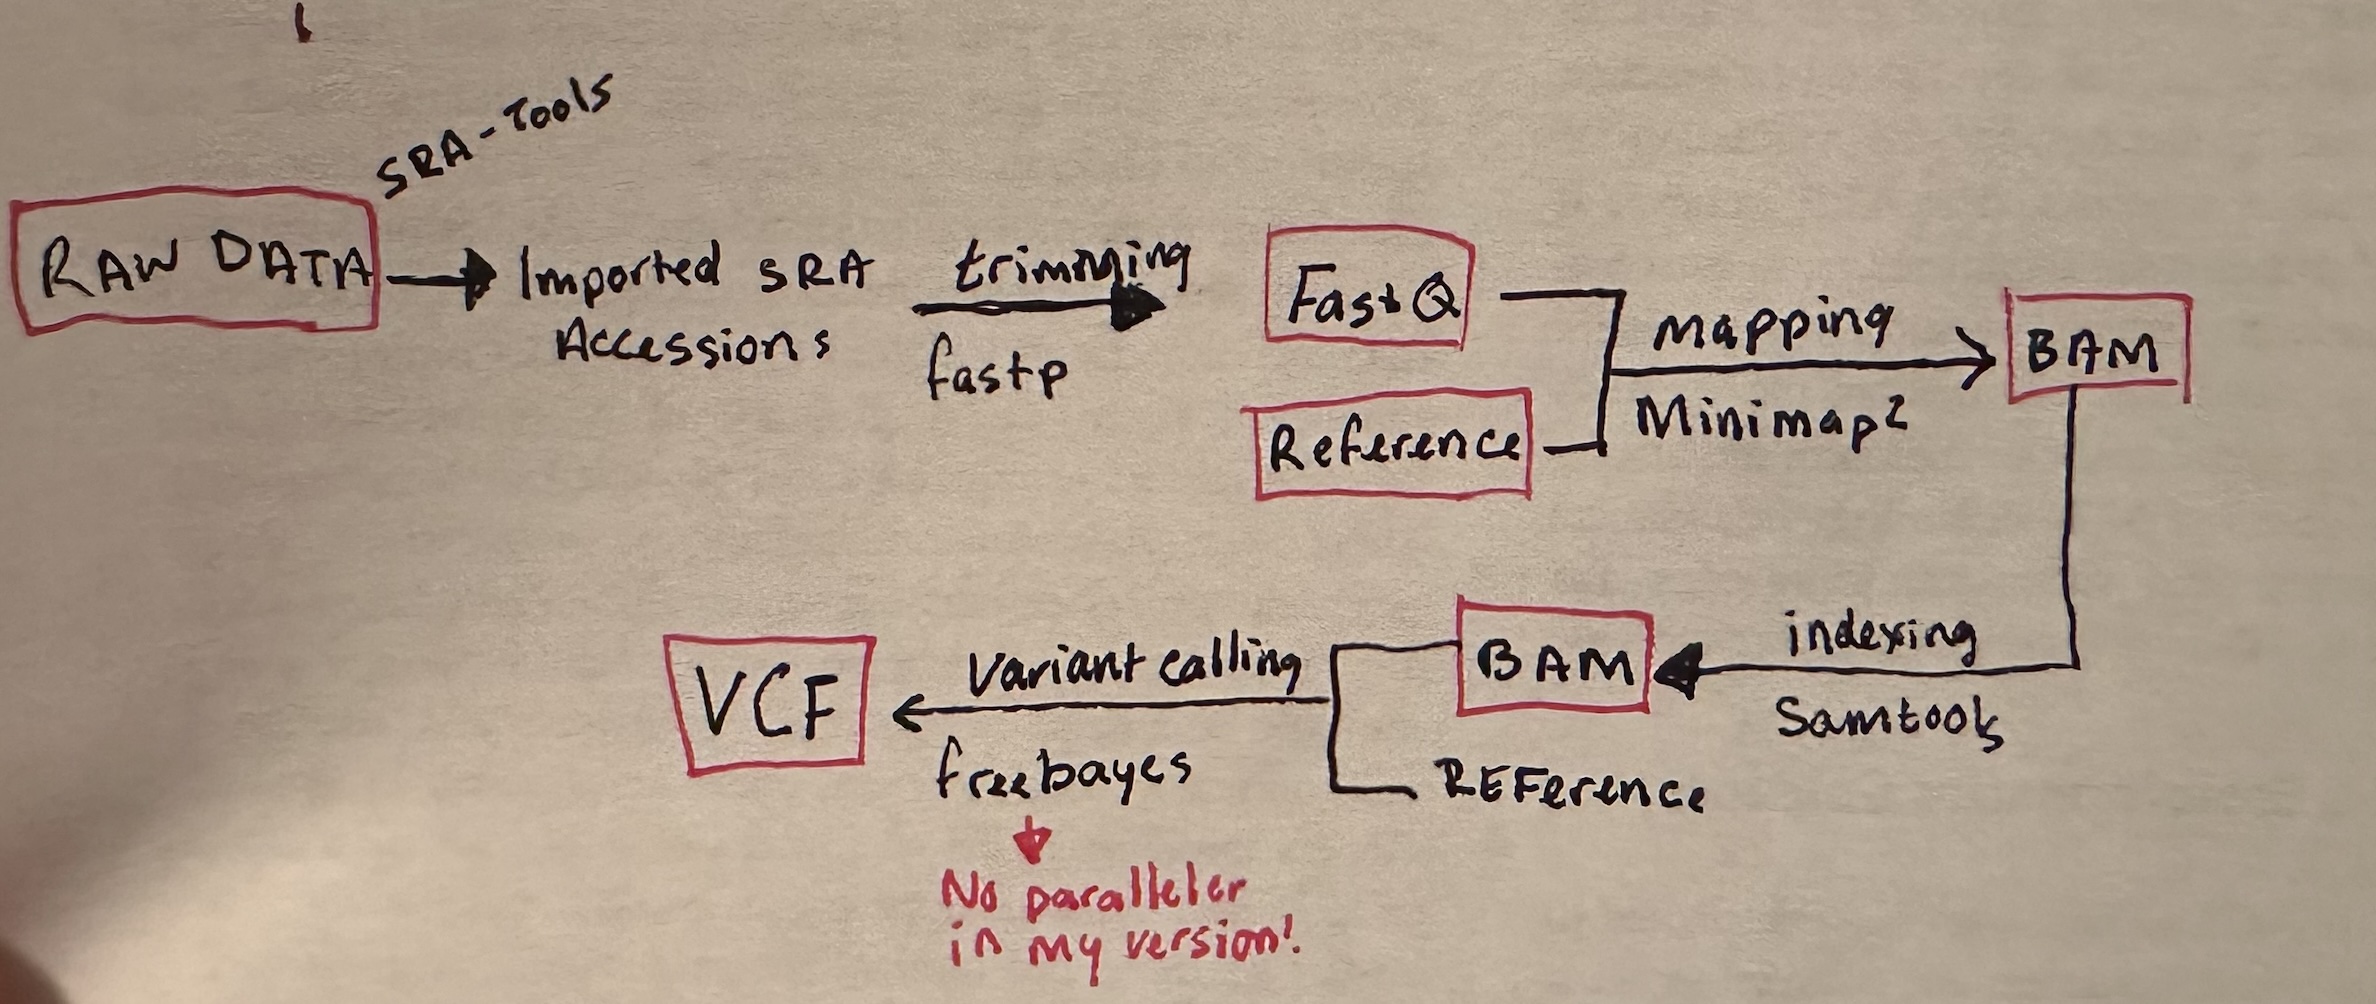 SRA-Tools
RAW DATA
Imported SRA
Accessions
trimming
fastp
FastQ
Reference
mapping
Minimap2
BAM
indexing
Samtools
BAM
REFerence
Variant calling
freebayes
VCF
No paralleler
in my version!